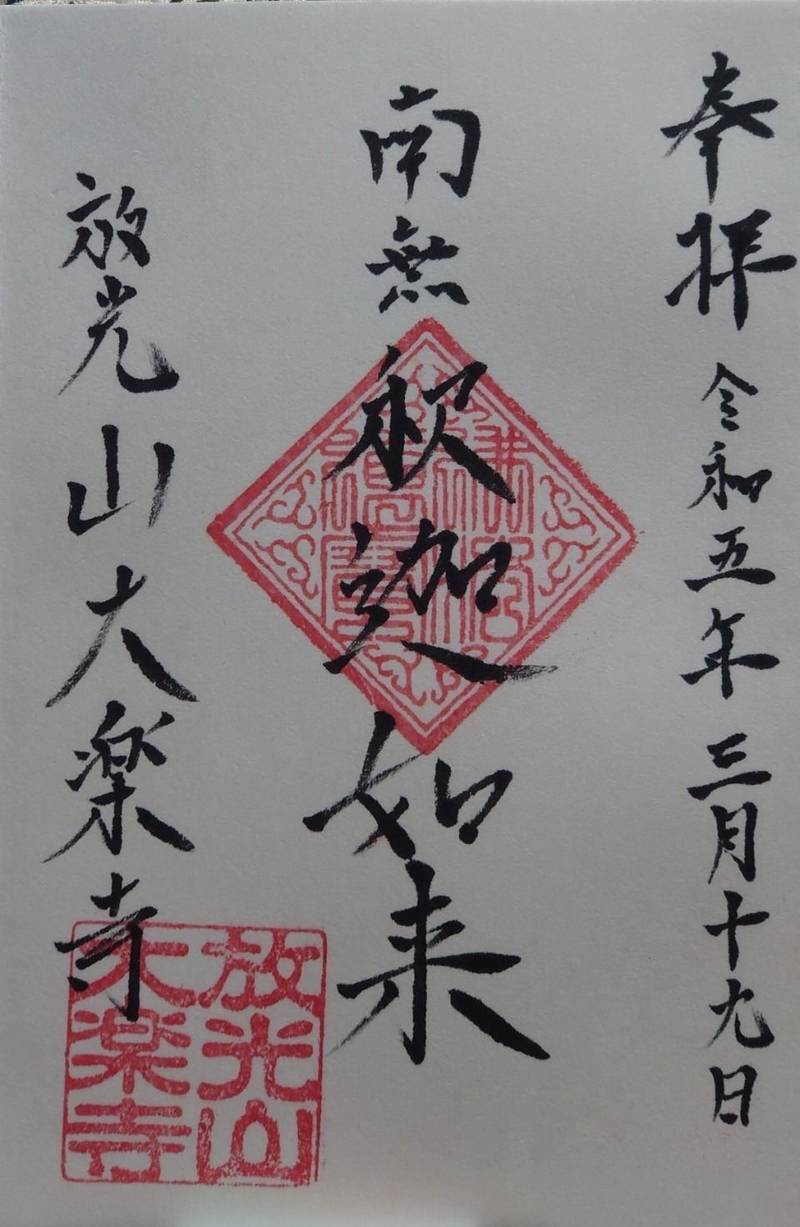 奉拝 令和五年三月十九日
南無釈迦如来
放光山大楽寺
放光山
大楽寺